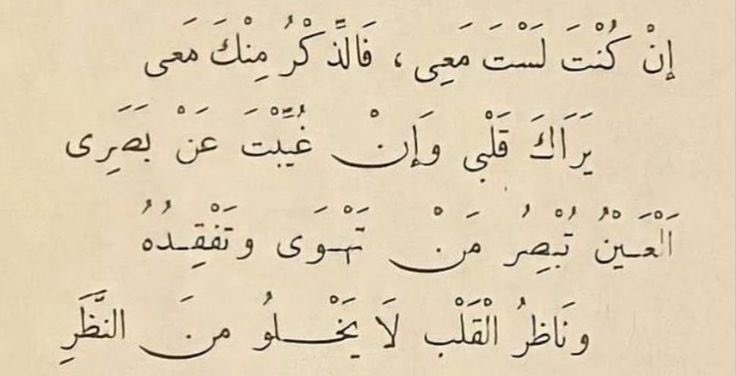 إِنْ كُنْتَ لَسْتَ مَعِى ، فَالذِّكْرُ مِنْكَ مَعى
يَرَاكَ قَلْبى وَإنْ غُيِّبْتَ عَنْ بَصَرِى
اَلْعَيْنُ تُبْصِرُ مَنْ تَهْوَى وَتَفْقِدُهُ
وَنَاظرُ الْقَلْبِ لَا يَخْلُو منَ النَّظَرِ